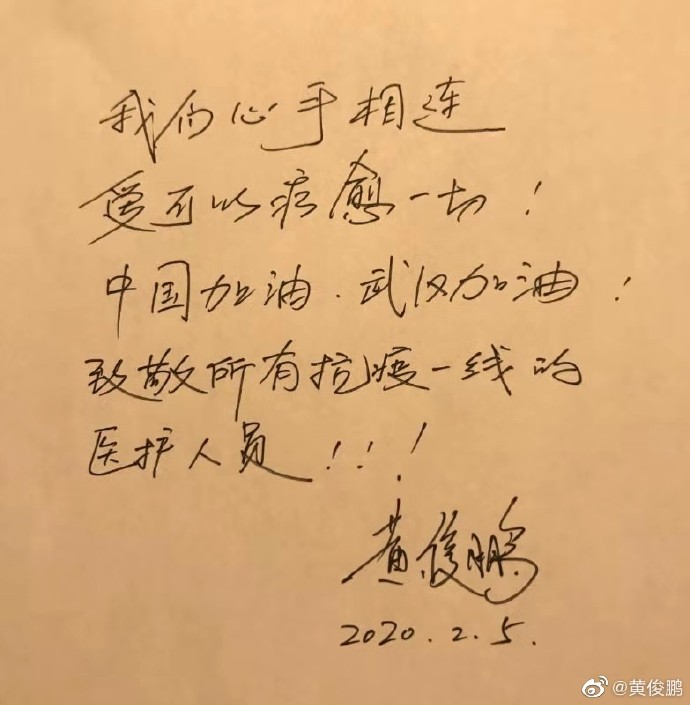 我们心手相连
爱可以疗愈一切！
中国加油．武汉加油！
致敬所有抗疫一线的
医护人员！！！
黄俊鹏
2020.2.5.
@黄俊鹏